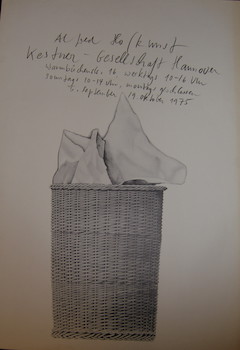 Alfred Hofkunst
Kestner-Gesellschaft Hannover
Warmbüchenstr. 16, werktags 10-18 Uhr
Sonntags 10-14 Uhr, montags geschlossen
5. September 19. Oktober 1975